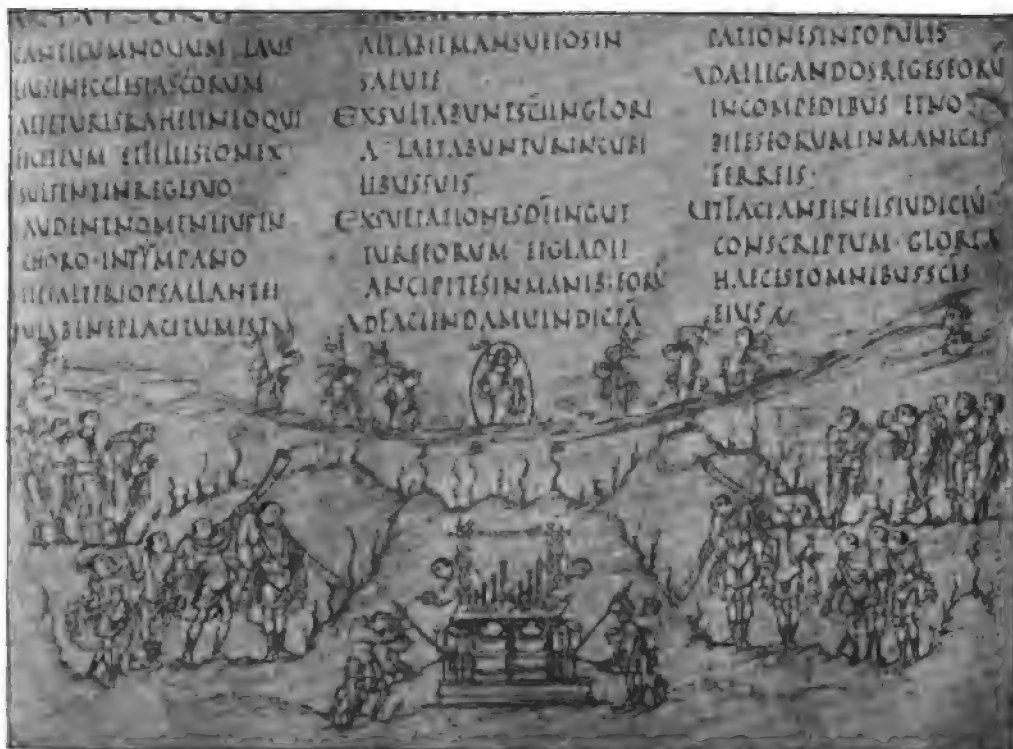 CANTICUMNOUUM LAUS
EIUSINECCLESIASCORUM
LAETETURISRAHELINEOQUI
FECITEUM ETFILIISIONEX
SULTENTINREGESUO
LAUDENTNOMENEIUSIN
CHORO·INTYMPANO
ETPSALTERIOPSALLANTEI
QUIABENEPLACITUMEST
ALTABITMANSUETOSIN
SALUTE
EXSULTABUNTSC̄IINGLORI
A LAETABUNTURINCUBI
LIBUSSUIS
EXSULTATIONESD̄IINGUT
TUREEORUM ETGLADII
ANCIPITESINMANIB:EORŪ
ADFACIENDAMUINDICTĀ
PATIONESINPOPULIS
ADALLIGANDOSREGESEORŪ
INCOMPEDIBUS ETNO
BILESEORUMINMANICIS
FERREIS:
UTFACIANTINEISIUDICIŪ
CONSCRIPTUM·GLORIA
HAECESTOMNIBUSSC̄IS
EIUS